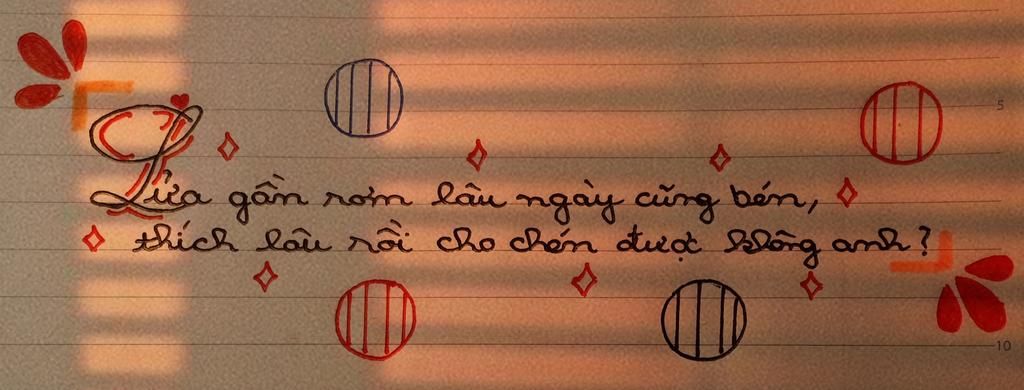 5
Lửa gần rơm lâu ngày cũng bén,
thích lâu rồi cho chén được không anh?
10